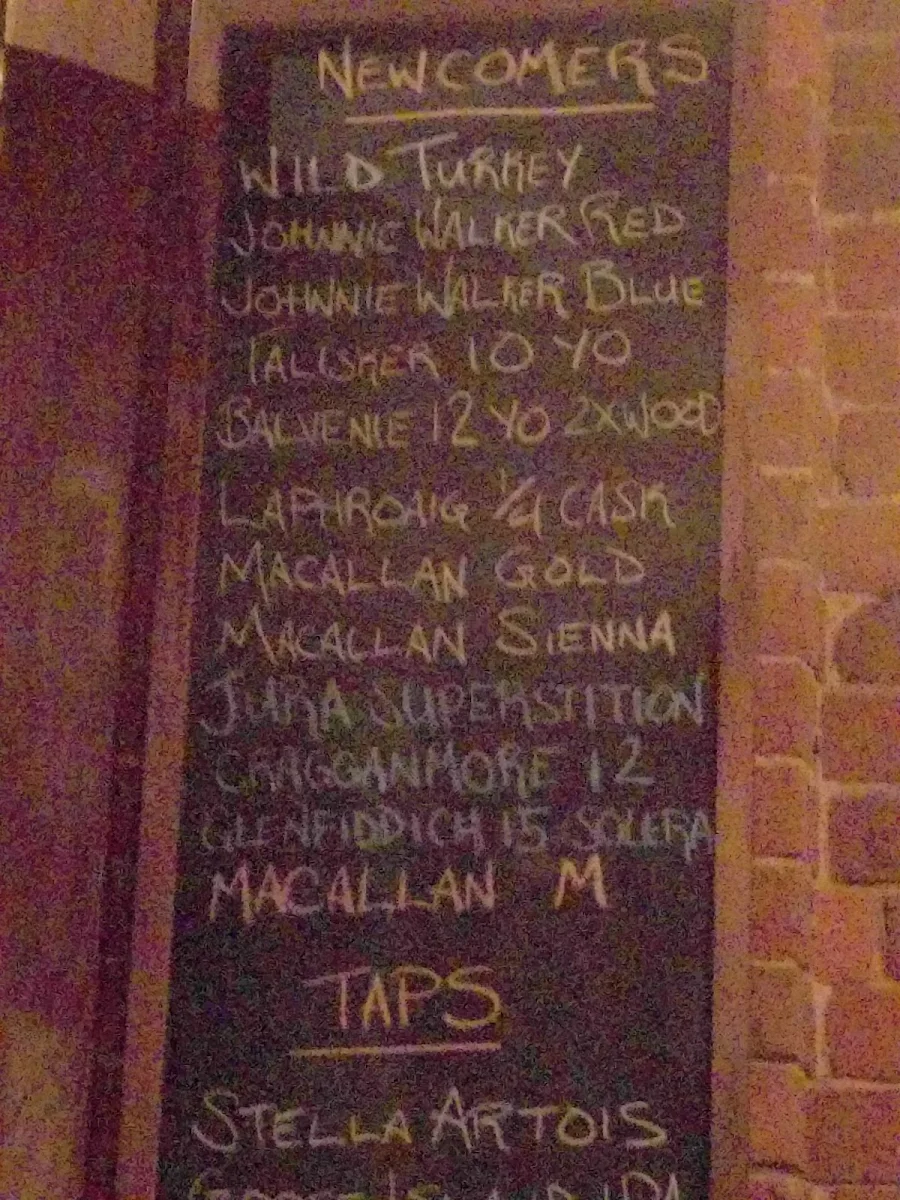 NEWCOMERS
WILD TURKEY
JOHNNIE WALKER RED
JOHNNIE WALKER BLUE
TALISKER 10 YO
BALVENIE 12 YO 2XWOOD
LAPHROAIG 1/4 CASK
MACALLAN GOLD
MACALLAN SIENNA
JURA SUPERSTITION
CRAGGANMORE 12
GLENFIDDICH 15 SOLERA
MACALLAN M
TAPS
STELLA ARTOIS
GOOSE ISLAND IPA